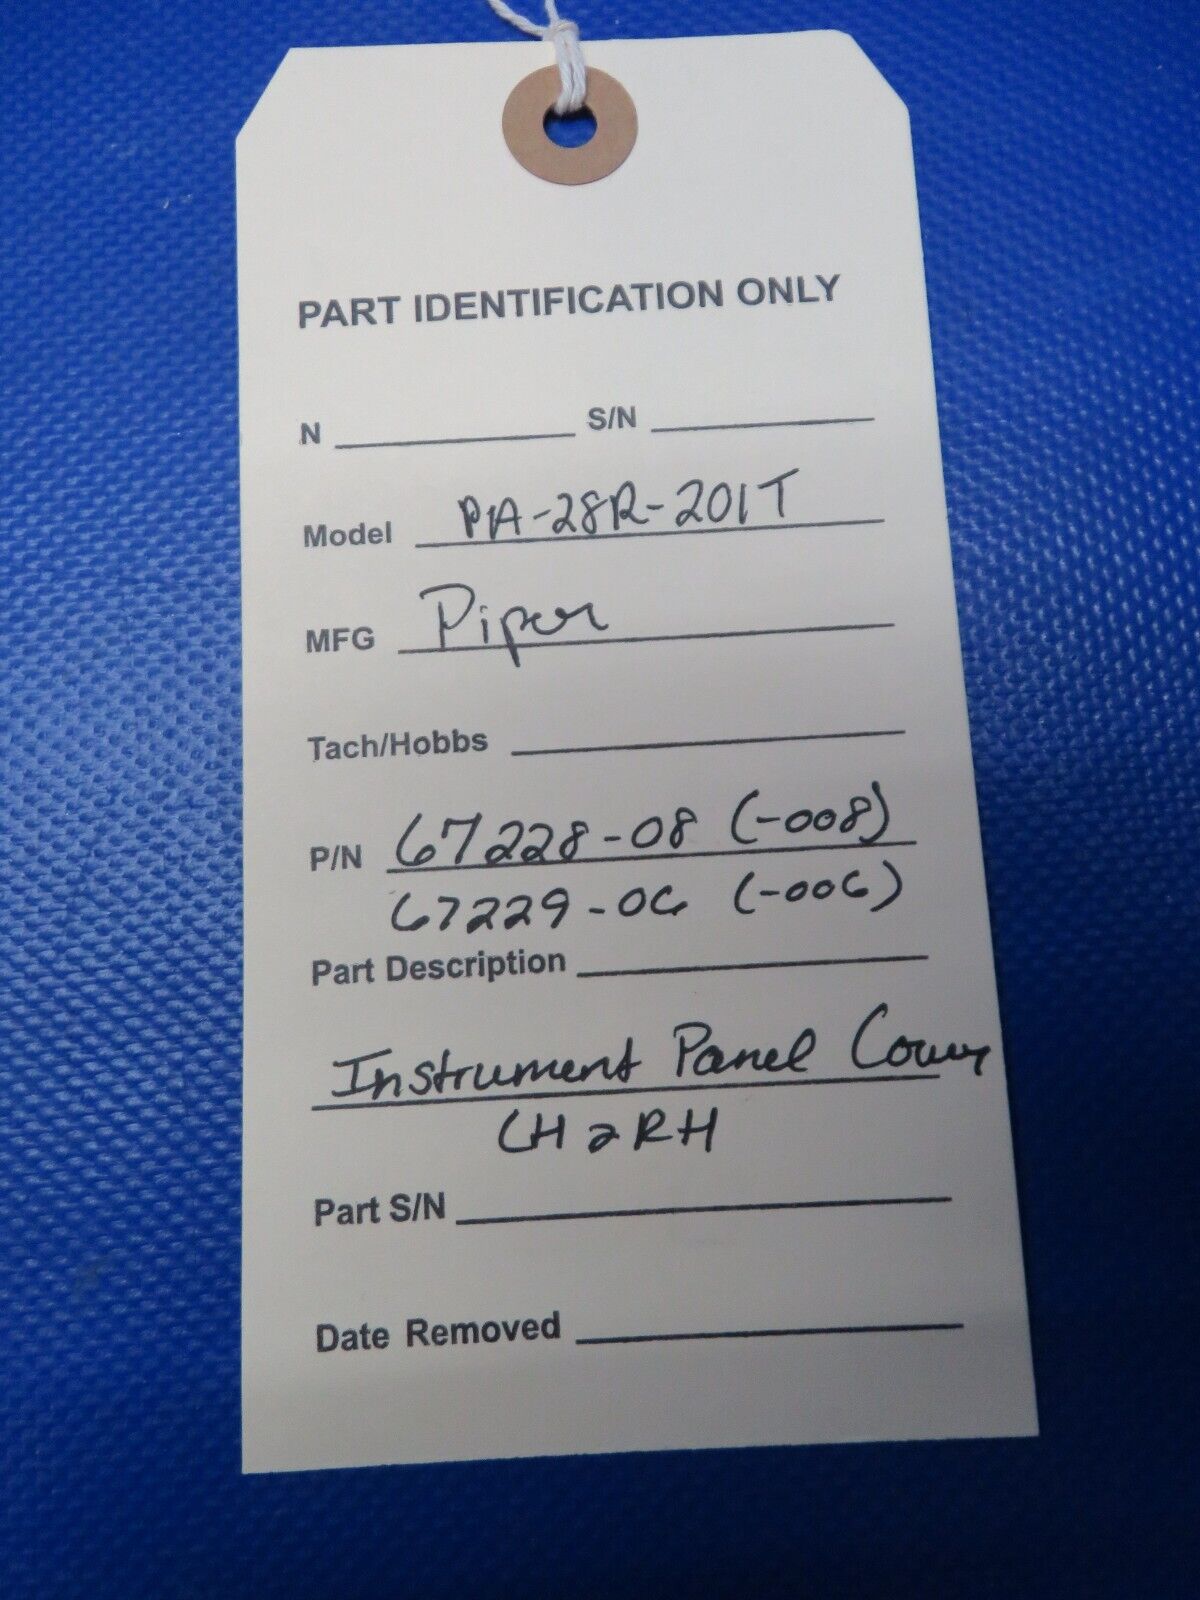 PART IDENTIFICATION ONLY
N S/N
Model PA-28R-201T
MFG Piper
Tach/Hobbs
P/N 67228-08 (-008)
67229-06 (-006)
Part Description
Instrument Panel Cover
LH & RH
Part S/N
Date Removed